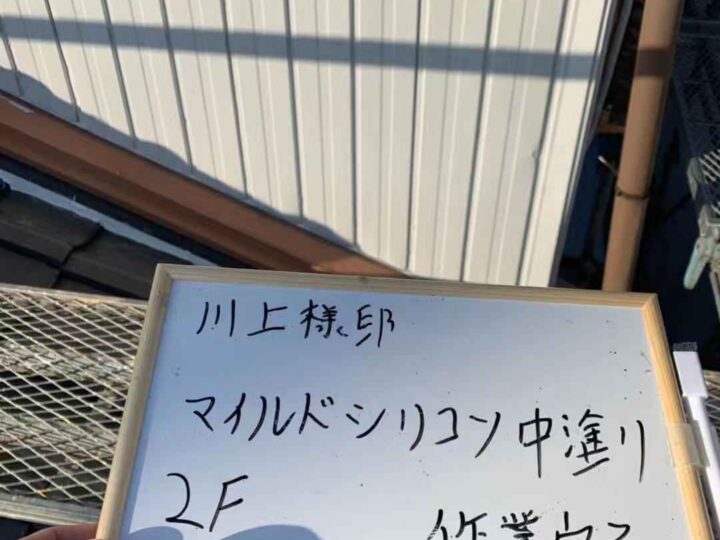 川上様邸
マイルドシリコン中塗り
2F
作業完了